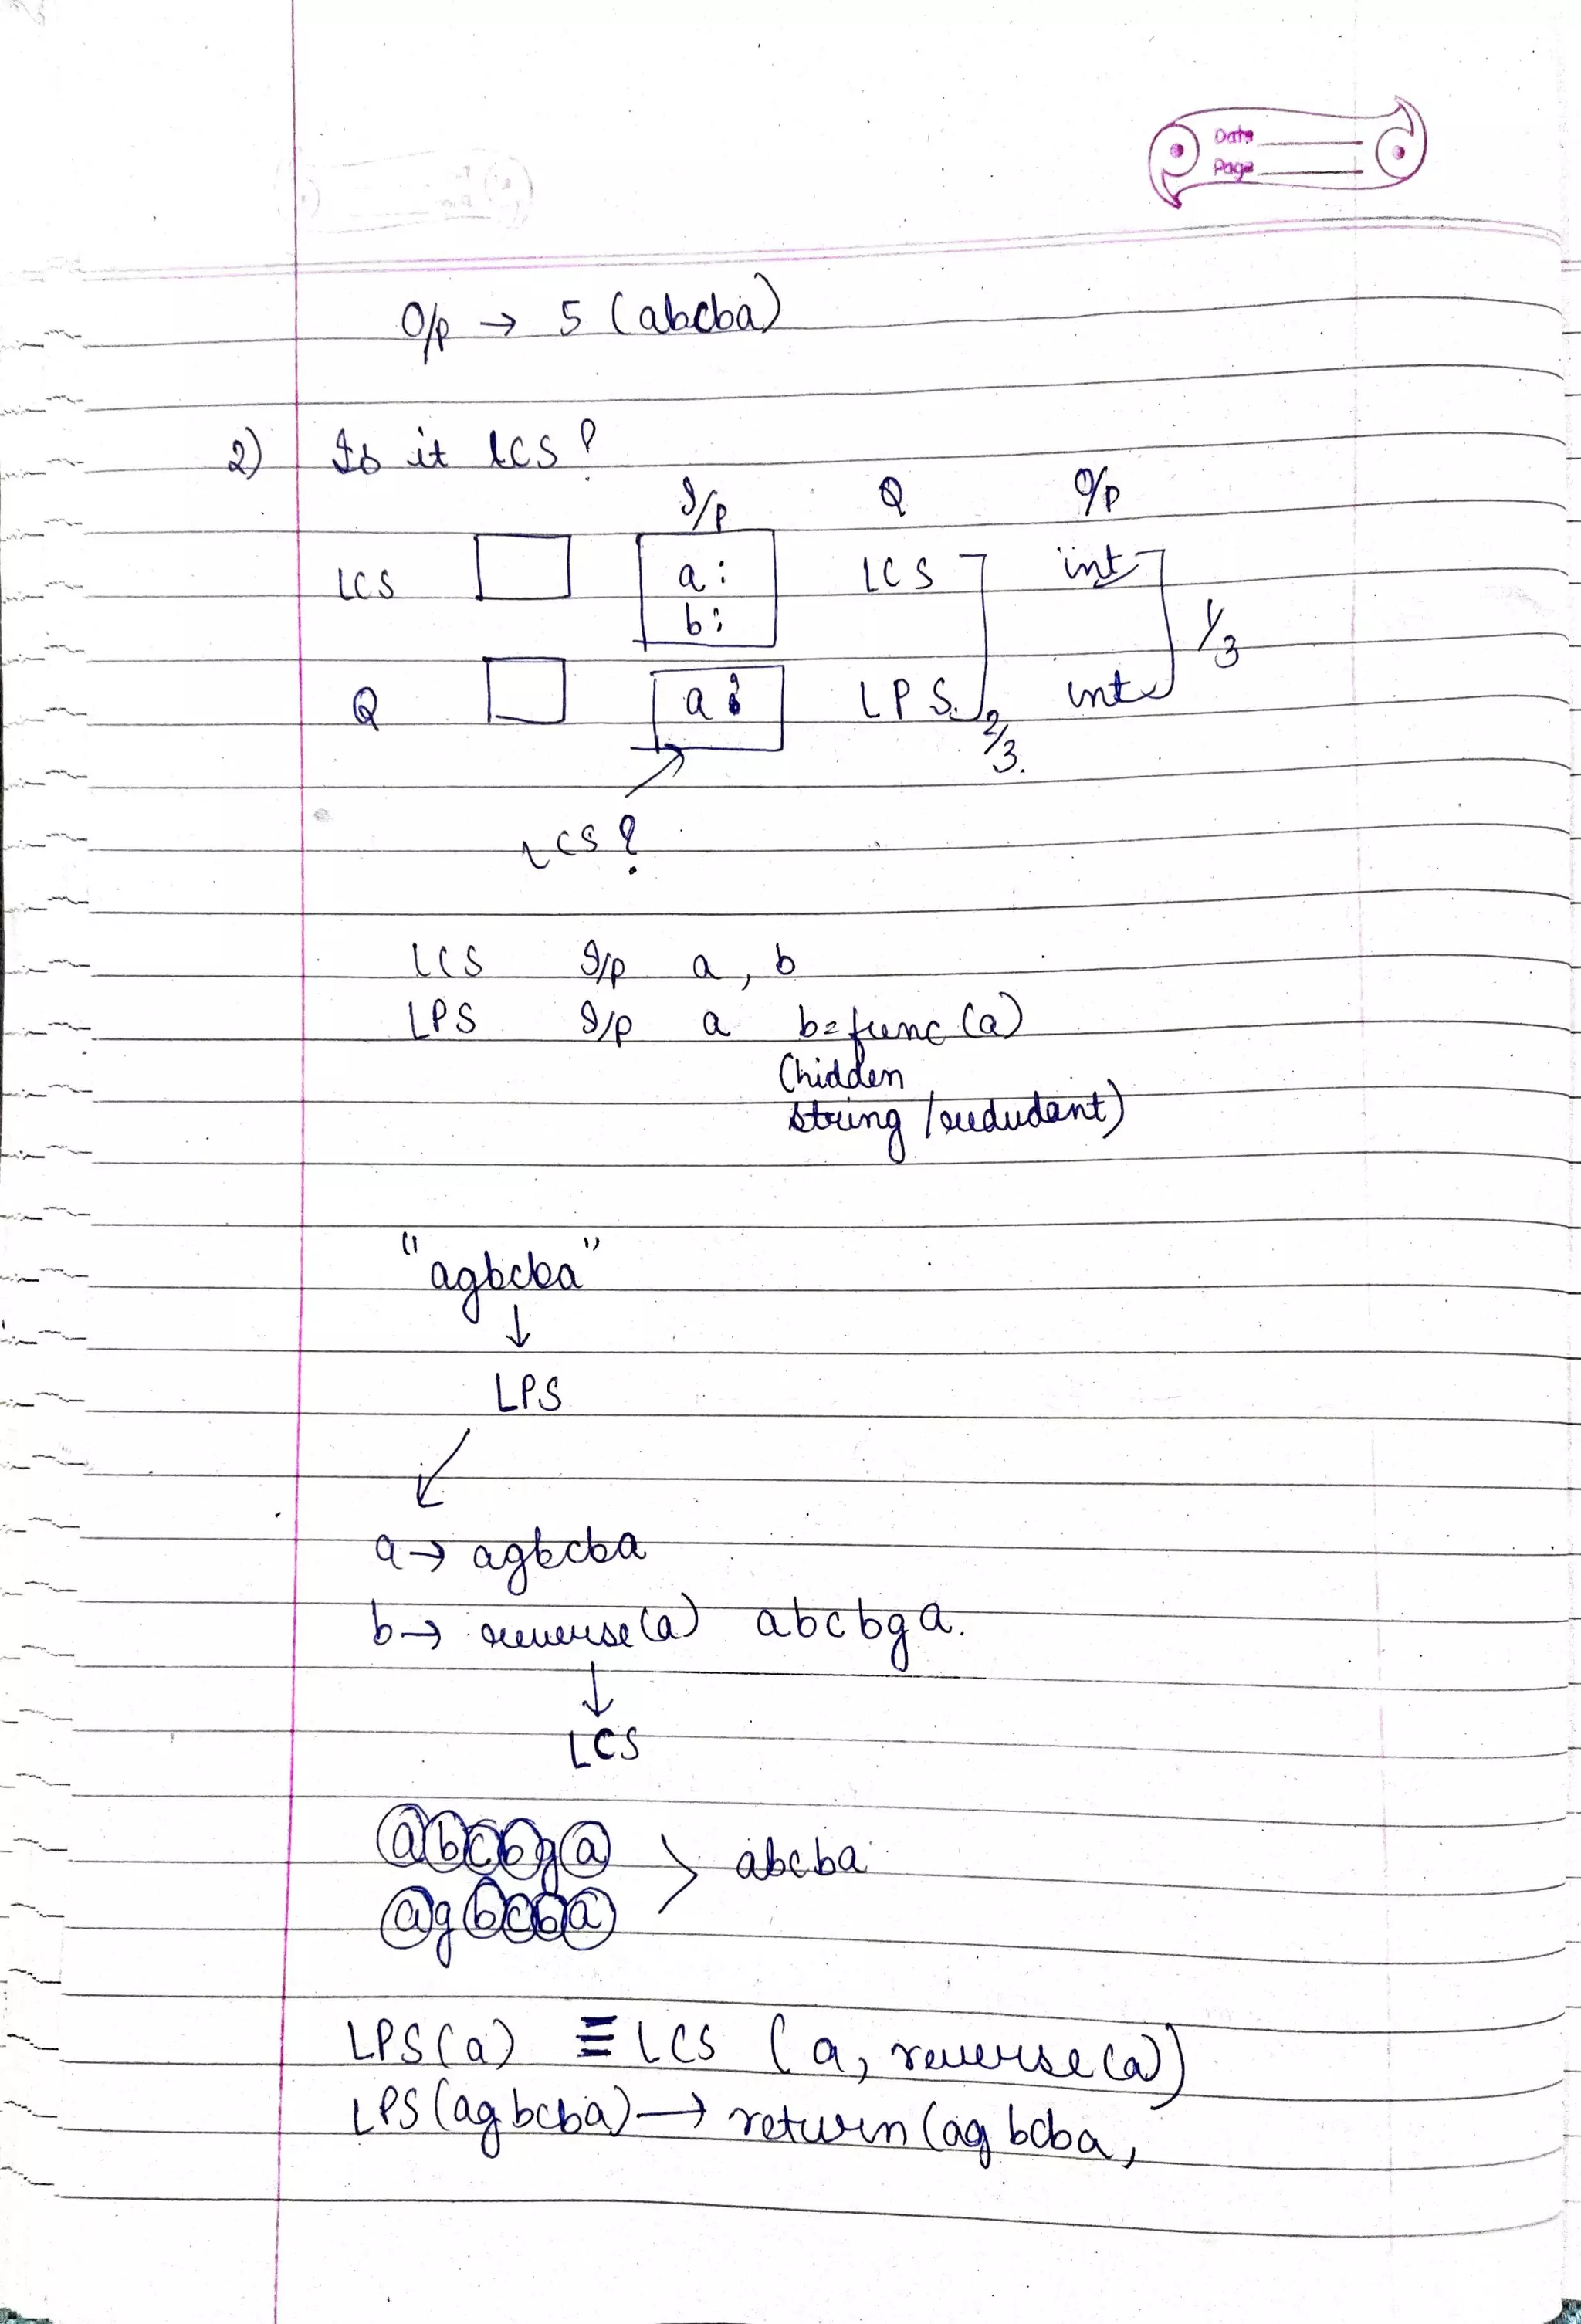 Date
Page
O/p → 5 (abcba)
2) Is it LCS?
I/p Q O/p
LCS a: LCS int
b: 1/3
Q a: LPS. int
2/3.
LCS?
LCS I/p a, b
LPS I/p a b=func(a)
(hidden
string /redudant)
"agbcba"
↓
LPS
a → agbcba
b → reverse(a) abcbga.
↓
LCS
abcbga > abcba
agbcba
LPS(a) ≡ LCS (a, reverse(a))
LPS(agbcba) → return(agbcba,